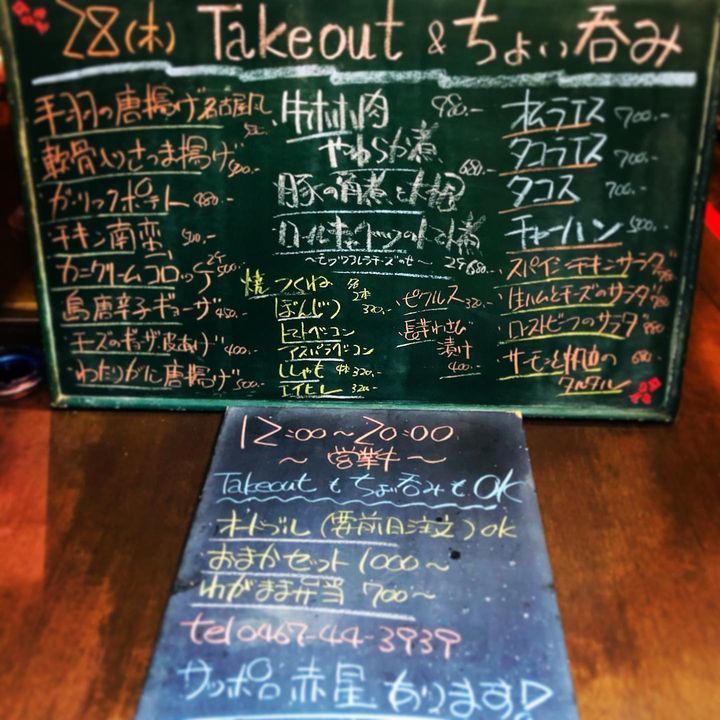 28(木) Takeout & ちょい呑み
手羽の唐揚げ名古屋風
軟骨入りさつま揚げ 400.-
ガーリックポテト 480.-
チキン南蛮 500.-
カニクリームコロッケ 2ケ 500.-
島唐辛子ギョーザ 450.-
チーズのギョーザ皮あげ 400.-
わたりがに唐揚げ 500.-
牛ホホ肉 980.-
やわらか煮
豚の角煮と大根 680.-
ロールキャベツのトマト煮
~モッツァレラチーズのせ~ 2ケ 680.-
焼 つくね 各2本
ぼんじり 320.-
トマトベーコン
アスパラベーコン
ししゃも 4本 320.-
エイヒレ 320.-
ピクルス 320.-
長芋わさび
漬け
400.-
オムライス 700.-
タコライス 700.-
タコス 700.-
チャーハン 500.-
スパイシーチキンサラダ 780
生ハムとチーズのサラダ 780
ローストビーフのサラダ 880
サーモンと帆立の 680.-
タルタル
12:00~20:00
~営業中~
Takeoutもちょい呑みもOK
オードブル(要前日注文)OK
おまかせセット 1000~
わがまま弁当 700~
tel 0467-44-3939
サッポロ赤星あります!